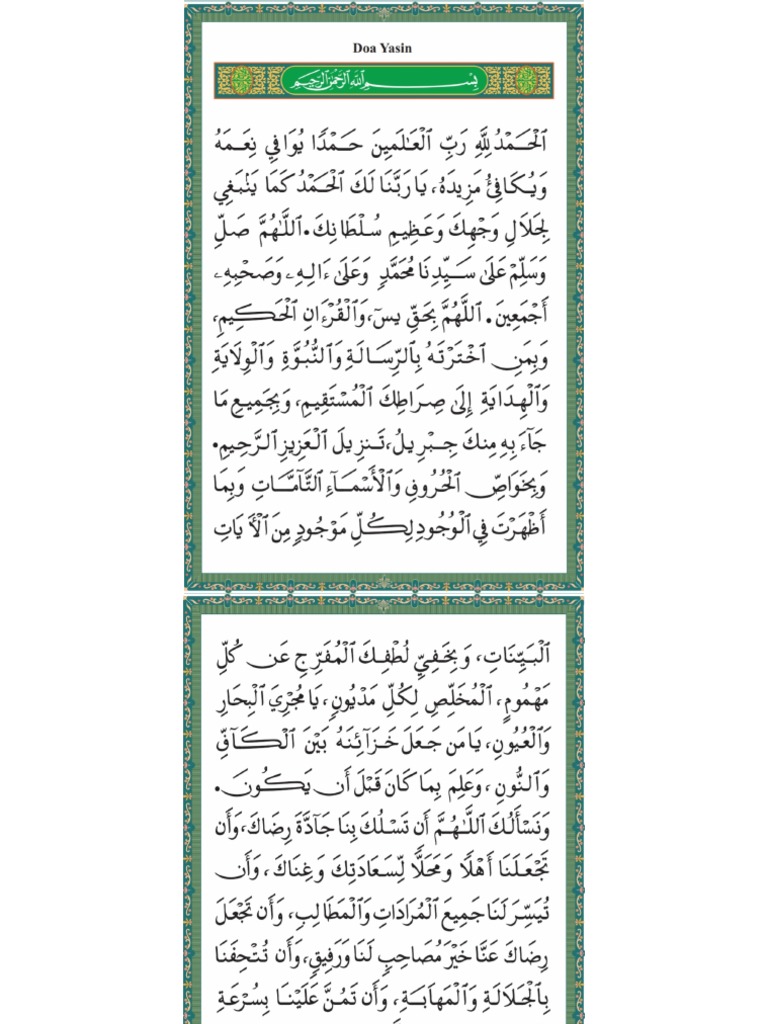 Doa Yasin
بِسْمِ ٱللَّهِ ٱلرَّحْمَٰنِ ٱلرَّحِيمِ
ٱلْحَمْدُ لِلَّهِ رَبِّ ٱلْعَالَمِينَ حَمْدًا يُوَافِي نِعَمَهُ
وَيُكَافِئُ مَزِيدَهُ، يَا رَبَّنَا لَكَ ٱلْحَمْدُ كَمَا يَنْبَغِي
لِجَلَالِ وَجْهِكَ وَعَظِيمِ سُلْطَانِكَ. ٱللَّهُمَّ صَلِّ
وَسَلِّمْ عَلَى سَيِّدِنَا مُحَمَّدٍ وَعَلَى ءَالِهِ وَصَحْبِهِ
أَجْمَعِينَ. ٱللَّهُمَّ بِحَقِّ يسٓ، وَٱلْقُرْءَانِ ٱلْحَكِيمِ،
وَبِمَنِ ٱخْتَرْتَهُ بِٱلرِّسَالَةِ وَٱلنُّبُوَّةِ وَٱلْوِلَايَةِ
وَٱلْهِدَايَةِ إِلَى صِرَاطِكَ ٱلْمُسْتَقِيمِ، وَبِجَمِيعِ مَا
جَآءَ بِهِ مِنكَ جِبْرِيلُ، تَنزِيلَ ٱلْعَزِيزِ ٱلرَّحِيمِ.
وَبِخَوَاصِّ ٱلْحُرُوفِ وَٱلْأَسْمَآءِ ٱلتَّآمَّاتِ وَبِمَا
أَظْهَرْتَ فِي ٱلْوُجُودِ لِكُلِّ مَوْجُودٍ مِنَ ٱلْأَيَاتِ
ٱلْبَيِّنَاتِ، وَبِخَفِيِّ لُطْفِكَ ٱلْمُفَرِّجِ عَن كُلِّ
مَهْمُومٍ، ٱلْمُخَلِّصِ لِكُلِّ مَدْيُونٍ، يَا مُجْرِيَ ٱلْبِحَارِ
وَٱلْعُيُونِ، يَا مَن جَعَلَ خَزَآئِنَهُ بَيْنَ ٱلْكَافِّ
وَٱلنُّونِ، وَعَلِمَ بِمَا كَانَ قَبْلَ أَن يَكُونَ.
وَنَسْأَلُكَ ٱللَّهُمَّ أَن تَسْلُكَ بِنَا جَآدَّةَ رِضَاكَ، وَأَن
تَجْعَلَنَا أَهْلًا وَمَحَلًّا لِّسَعَادَتِكَ وَغِنَاكَ، وَأَن
تُيَسِّرَ لَنَا جَمِيعَ ٱلْمُرَادَاتِ وَٱلْمَطَالِبِ، وَأَن تَجْعَلَ
رِضَاكَ عَنَّا خَيْرَ مُصَاحِبٍ لَنَا وَرَفِيقٍ، وَأَن تُتْحِفَنَا
بِٱلْجَلَالَةِ وَٱلْمَهَابَةِ، وَأَن تَمُنَّ عَلَيْنَا بِسُرْعَةِ